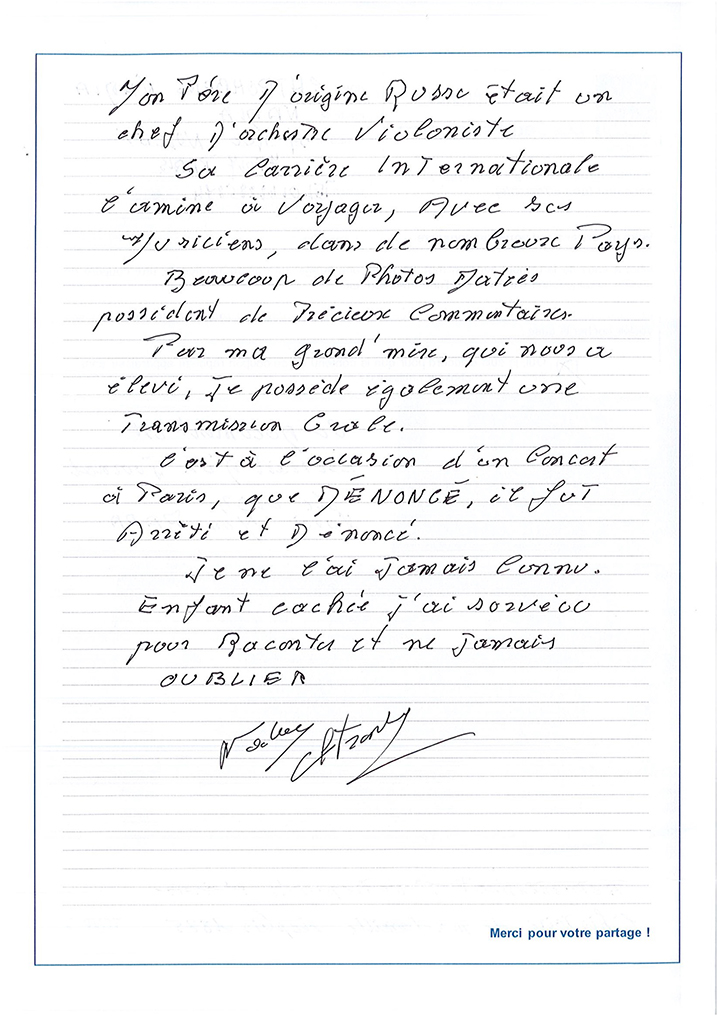 Mon Père D'origine Russe était un
chef D'orchestre Violoniste
Sa Carrière Internationale
l'amène à Voyager, Avec ses
Musiciens, dans de nombreux Pays.
Beaucoup de Photos Datées
possèdent de Précieux Commentaires.
Par ma grand'mère, qui nous a
élevé, Je possède également une
Transmission Orale.
C'est à l'occasion d'un Concert
à Paris, que DÉNONCÉ, il fut
Arrêté et Dénoncé.
Je ne l'ai Jamais Connu.
Enfant cachée j'ai survécu
pour Raconter et ne Jamais
OUBLIER
Merci pour votre partage !